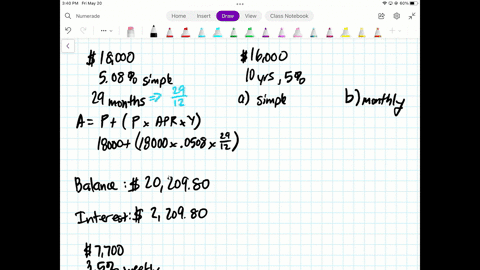 3:40 PM Fri May 20
60%
Numerade
Home Insert Draw View Class Notebook
$18,000
5.08% simple
29 months ⇒ 29/12
A = P + (P x APR x Y)
18000 + (18000 x .0508 x 29/12)
Balance: $20,209.80
Interest: $2,209.80
$7,700
3.5% weekly
$16,000
10 yrs, 5%
a) simple
b) monthly